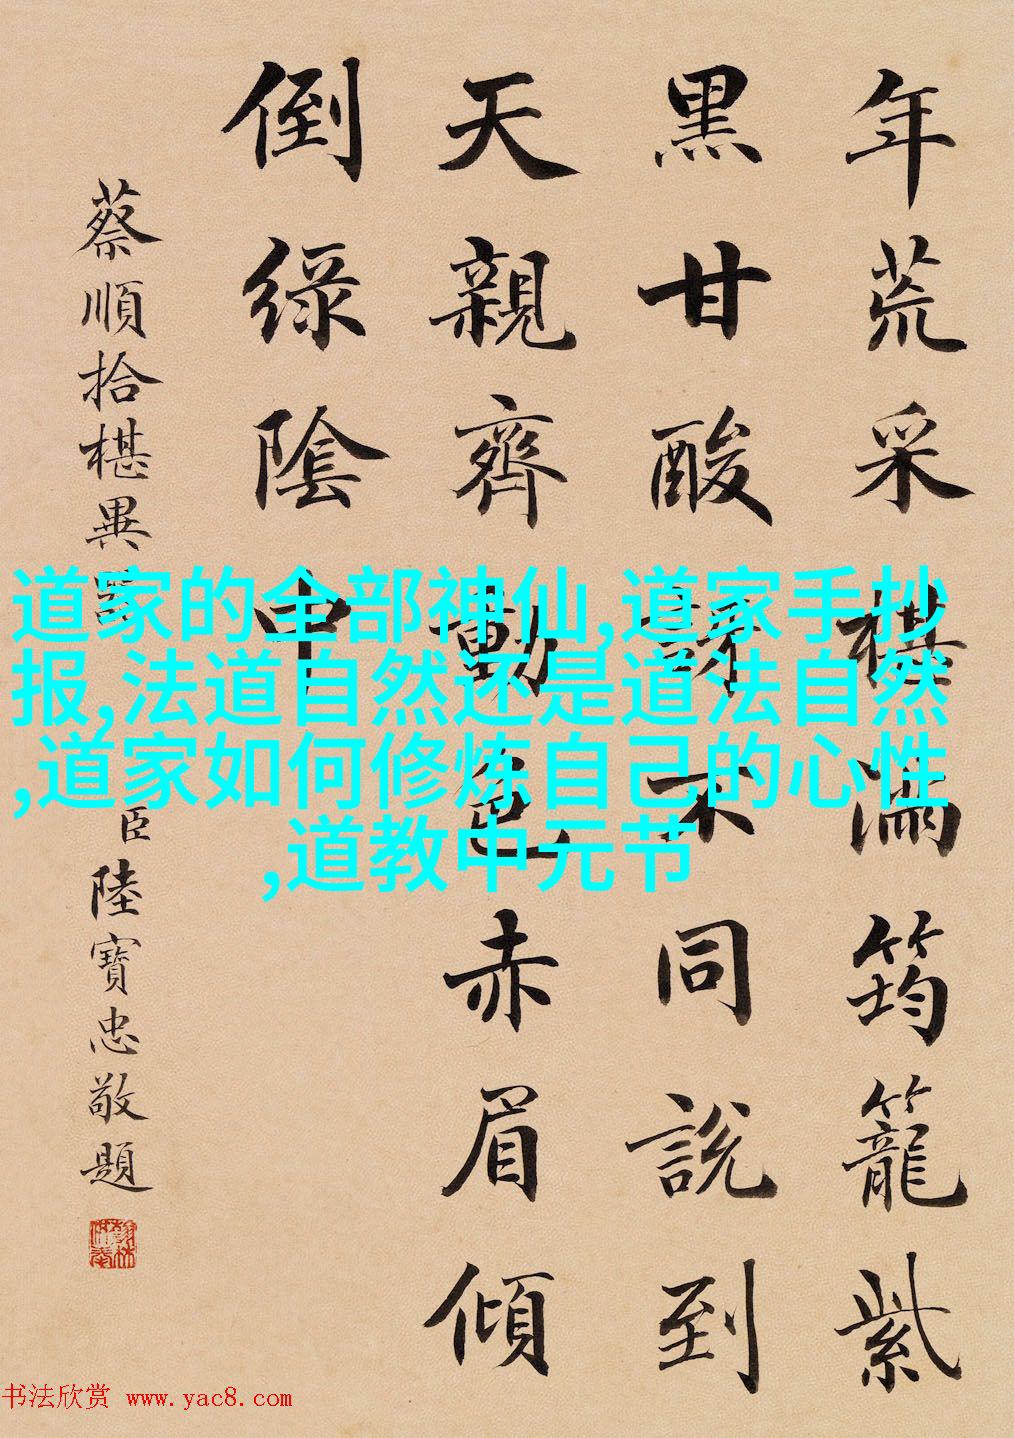 年荒采椹滿筠籠紫
黑甘酸不同說到
天親齊動色赤眉傾
倒綠陰中
蔡順拾椹異器
臣陸寶忠敬題
道家的全部神仙,道家手抄
报,法道自然还是道法自然
,道家如何修炼自己的心性
,道教中元节
书法欣赏 www.yac8.com